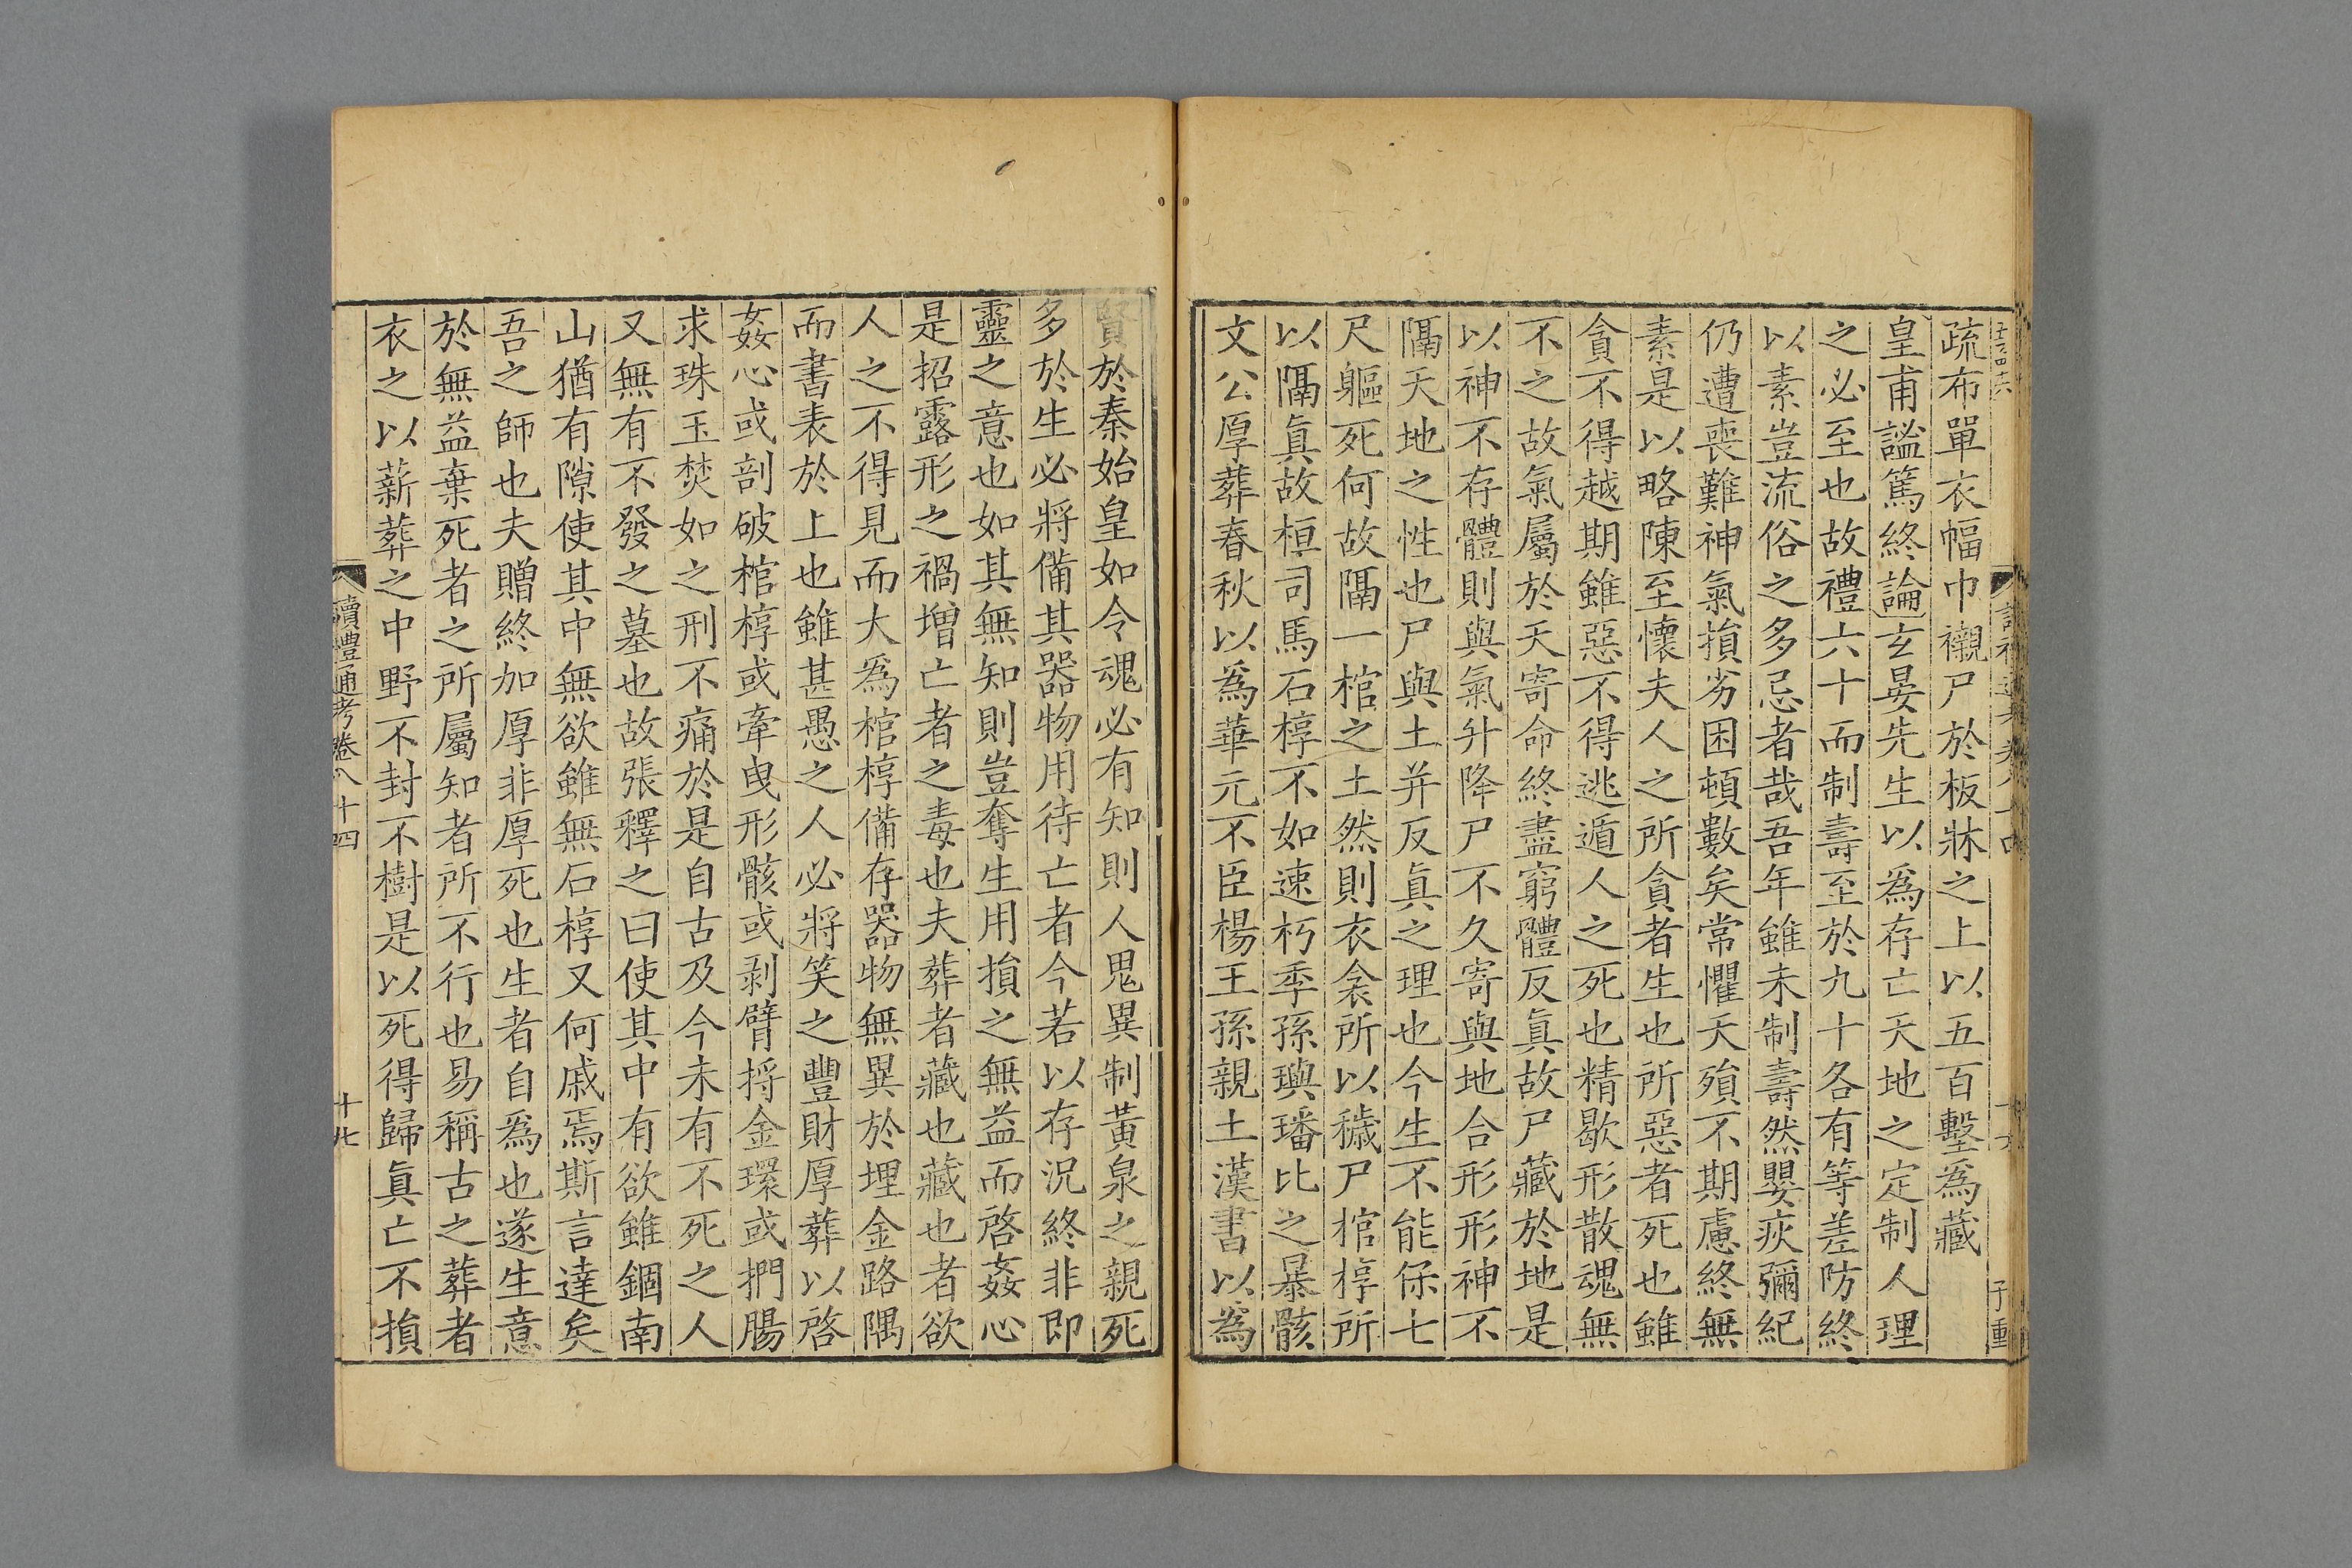 疏布單衣幅巾襯尸於板牀之上以五百墼為藏
皇甫謐篤終論玄晏先生以爲存亡天地之定制人理
之必至也故禮六十而制壽至於九十各有等差防終
以素豈流俗之多忌者哉吾年雖未制壽然嬰疢彌紀
仍遭喪難神氣損劣困頓數矣常懼夭殞不期慮終無
素是以略陳至懷夫人之所貪者生也所惡者死也雖
貪不得越期雖惡不得逃遁人之死也精歇形散魂無
不之故氣屬於天寄命終盡窮體反眞故尸藏於地是
以神不存體則與氣升降尸不久寄與地合形形神不
隔天地之性也尸與土并反眞之理也今生不能保七
尺軀死何故隔一棺之土然則衣衾所以穢尸棺椁所
以隔眞故桓司馬石椁不如速朽季孫璵璠比之暴骸
文公厚葬春秋以爲華元不臣楊王孫親土漢書以爲
賢於秦始皇如令魂必有知則人鬼異制黃泉之親死
多於生必將備其器物用待亡者今若以存況終非即
靈之意也如其無知則豈奪生用損之無益而啓姦心
是招露形之禍增亡者之毒也夫葬者藏也藏也者欲
人之不得見而大爲棺椁備存器物無異於埋金路隅
而書表於上也雖甚愚之人必將笑之豐財厚葬以啓
姦心或剖破棺椁或牽曳形骸或剥臂捋金環或捫腸
求珠玉焚如之刑不痛於是自古及今未有不死之人
又無有不發之墓也故張釋之曰使其中有欲雖錮南
山猶有隙使其中無欲雖無石椁又何戚焉斯言達矣
吾之師也夫贈終加厚非厚死也生者自爲也遂生意
於無益棄死者之所屬知者所不行也易稱古之葬者
衣之以薪葬之中野不封不樹是以死得歸眞亡不損
讀禮通考卷八十四
十七